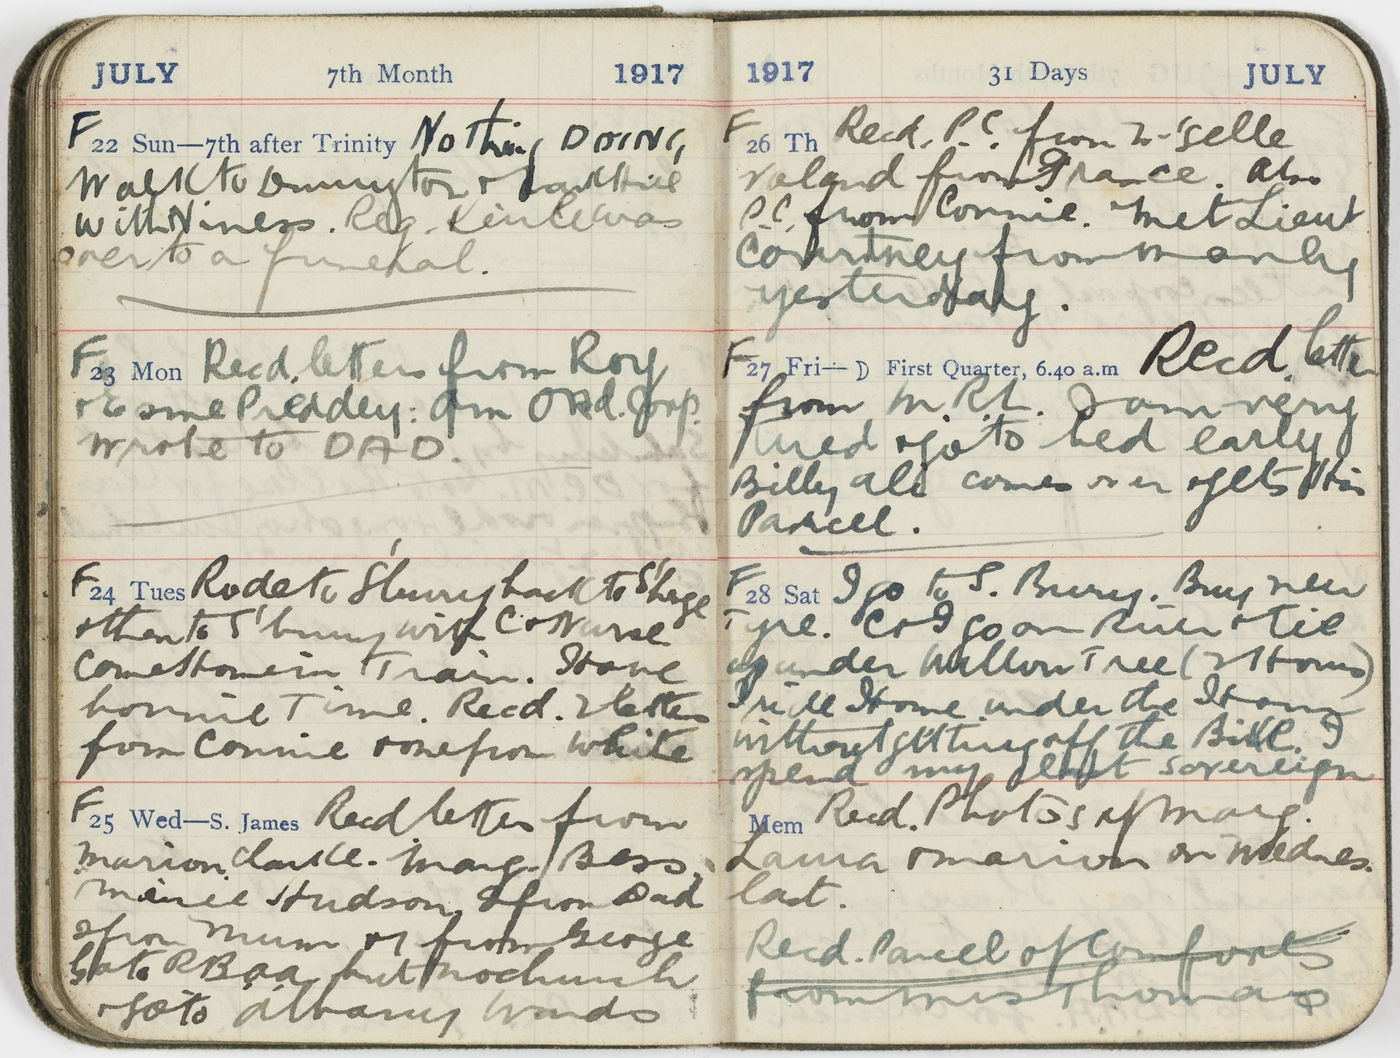 JULY 7th Month 1917
F 22 Sun—7th after Trinity Nothing DOING
Walk to Durrington & Lark Hill
with Niness. Reg. was
over to a funeral.
F 23 Mon Recd. letters from Roy
& Esme Preddey. Am Ord. Corp.
Wrote to DAD.
F 24 Tues Rode to S'bury back to S'henge
& then to S'bury with C & Nurse
Come Home in Train. Have
bonnie Time. Recd. 2 letters
from Connie & one from White
F 25 Wed—S. James Recd letters from
Marion Clarke. Marg. Bess.
Minnie Hudson, 2 from Dad
2 from Mum & 1 from George
to but no church
& go to Albany Wards
1917 31 Days JULY
F 26 Th Recd. P.C. from M'selle
Valand from France. Also
P.C. from Connie. Met Lieut
Courtney from Manly
yesterday.
F 27 Fri— ☽ First Quarter, 6.40 a.m Recd. letter
from M.Rt. I am very
tired & go to bed early
Billy Ali comes over & gets His
Parcel.
F 28 Sat I go to S. Bury. Buy new
Tyre. C & I go on River & Tie
up under Willow Tree (2 Hours)
Ride Home under the
without getting off the Bike. I
spend my last sovereign
Mem Recd. Photos of Marg.
Laura & Marion on Wednes.
last.
Recd. Parcel of Comforts
from Mrs Thomas